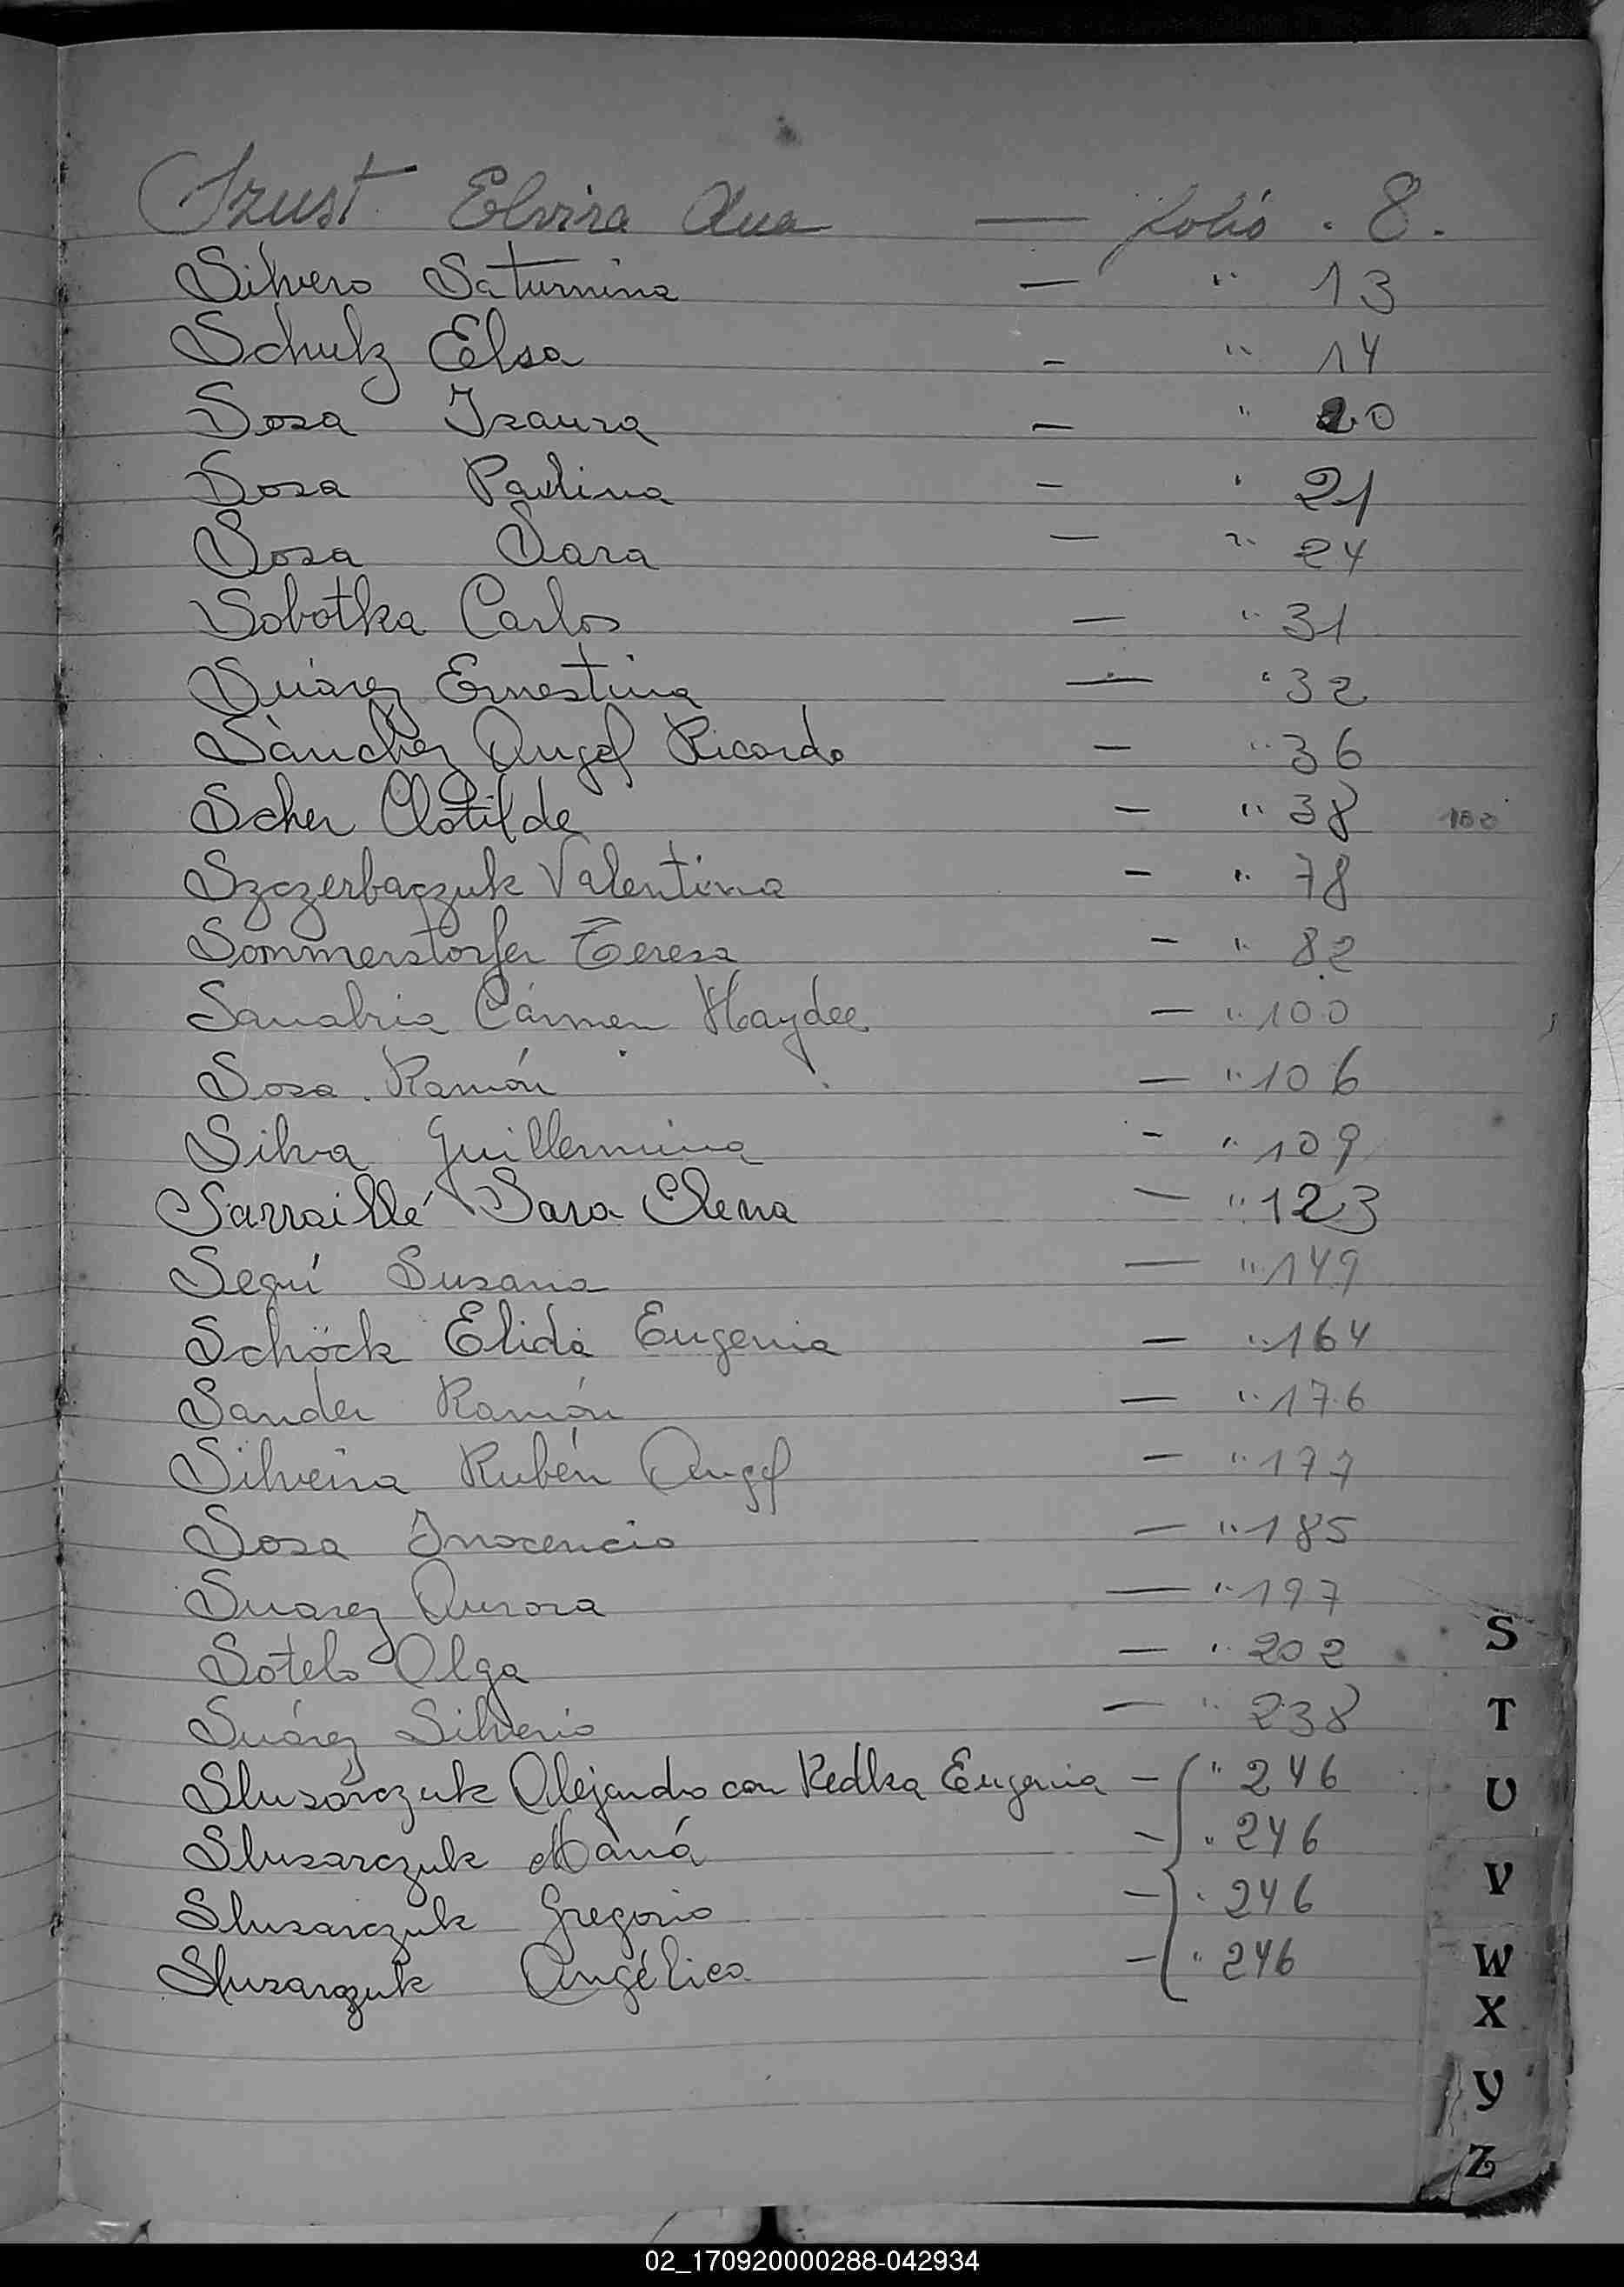 Szust Elvira Ana — folio . 8.
Silvero Saturnina — " 13
Schulz Elsa - " 14
Sosa Isaura — " 20
Sosa Paulina - " 21
Sosa Sara — " 24
Sobotka Carlos — " 31
Suárez Ernestina — " 32
Sánchez Angel Ricardo — " 36
Scher Clotilde — " 38 100
Szczerbaczuk Valentina - " 78
Sommerstorfer Teresa - " 82
Sanabria Cármen Haydee — " 100
Sosa Ramón — " 106
Silva Guillermina - " 109
Sarraillé Sara Elena — " 123
Seguí Susana — " 149
Schöck Elida Eugenia — " 164
Sander Ramón — " 176
Silveira Rubén Angel — " 177
Sosa Inocencio — " 185
Suarez Aurora — " 197
Sotelo Olga — " 202
Suárez Silverio — " 238
Slusarczuk Alejandro con Redka Eugenia - " 246
Slusarczuk María - " 246
Slusarczuk Gregorio - " 246
Slusarczuk Angélica - " 246
S
T
U
V
W
X
Y
Z
02_170920000288-042934